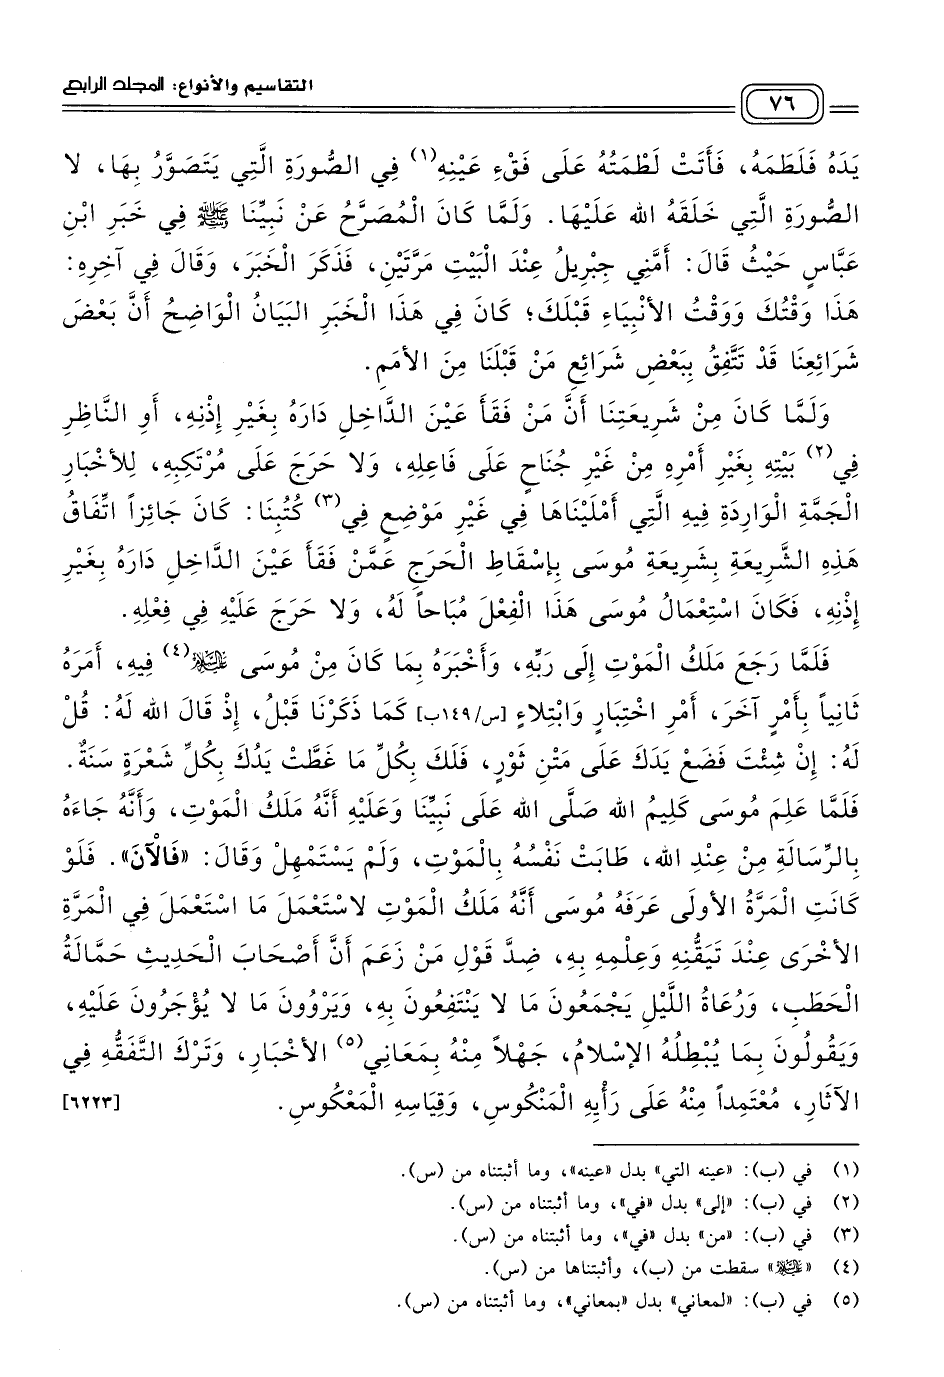 التقاسيم والأنواع: المجلد الرابع
٧٦
يَدَهُ فَلَطَمَهُ، فَأَتَتْ لَطْمَتُهُ عَلَى فَقْءِ عَيْنِهِ(١) فِي الصُّورَةِ الَّتِي يَتَصَوَّرُ بِهَا، لا
الصُّورَةِ الَّتِي خَلَقَهُ الله عَلَيْهَا. وَلَمَّا كَانَ الْمُصَرَّحُ عَنْ نَبِيِّنَا ﷺ فِي خَبَرِ ابْنِ
عَبَّاسٍ حَيْثُ قَالَ: أَمَّنِي جِبْرِيلُ عِنْدَ الْبَيْتِ مَرَّتَيْنِ، فَذَكَرَ الْخَبَرَ، وَقَالَ فِي آخِرِهِ:
هَذَا وَقْتُكَ وَوَقْتُ الأَنْبِيَاءِ قَبْلَكَ؛ كَانَ فِي هَذَا الْخَبَرِ البَيَانُ الْوَاضِحُ أَنَّ بَعْضَ
شَرَائِعِنَا قَدْ تَتَّفِقُ بِبَعْضِ شَرَائِعِ مَنْ قَبْلَنَا مِنَ الأُمَمِ.
وَلَمَّا كَانَ مِنْ شَرِيعَتِنَا أَنَّ مَنْ فَقَأَ عَيْنَ الدَّاخِلِ دَارَهُ بِغَيْرِ إِذْنِهِ، أَوِ النَّاظِرِ
فِي(٢) بَيْتِهِ بِغَيْرِ أَمْرِهِ مِنْ غَيْرِ جُنَاحٍ عَلَى فَاعِلِهِ، وَلا حَرَجَ عَلَى مُرْتَكِبِهِ، لِلأَخْبَارِ
الْجَمَّةِ الْوَارِدَةِ فِيهِ الَّتِي أَمْلَيْنَاهَا فِي غَيْرِ مَوْضِعٍ فِي(٣) كُتُبِنَا: كَانَ جَائِزاً اتِّفَاقُ
هَذِهِ الشَّرِيعَةِ بِشَرِيعَةِ مُوسَى بِإِسْقَاطِ الْحَرَجِ عَمَّنْ فَقَأَ عَيْنَ الدَّاخِلِ دَارَهُ بِغَيْرِ
إِذْنِهِ، فَكَانَ اسْتِعْمَالُ مُوسَى هَذَا الْفِعْلَ مُبَاحاً لَهُ، وَلا حَرَجَ عَلَيْهِ فِي فِعْلِهِ.
فَلَمَّا رَجَعَ مَلَكُ الْمَوْتِ إِلَى رَبِّهِ، وَأَخْبَرَهُ بِمَا كَانَ مِنْ مُوسَى ﵇(٤) فِيهِ، أَمَرَهُ
ثَانِياً بِأَمْرٍ آخَرَ، أَمْرِ اخْتِبَارٍ وَابْتِلاءٍ [س/١٤٩ب] كَمَا ذَكَرْنَا قَبْلُ، إِذْ قَالَ الله لَهُ: قُلْ
لَهُ: إِنْ شِئْتَ فَضَعْ يَدَكَ عَلَى مَتْنِ ثَوْرٍ، فَلَكَ بِكُلِّ مَا غَطَّتْ يَدُكَ بِكُلِّ شَعْرَةٍ سَنَةٌ.
فَلَمَّا عَلِمَ مُوسَى كَلِيمُ الله صَلَّى الله عَلَى نَبِيِّنَا وَعَلَيْهِ أَنَّهُ مَلَكُ الْمَوْتِ، وَأَنَّهُ جَاءَهُ
بِالرِّسَالَةِ مِنْ عِنْدِ الله، طَابَتْ نَفْسُهُ بِالْمَوْتِ، وَلَمْ يَسْتَمْهِلْ وَقَالَ: «فَالْآنَ». فَلَوْ
كَانَتِ الْمَرَّةُ الأُولَى عَرَفَهُ مُوسَى أَنَّهُ مَلَكُ الْمَوْتِ لاسْتَعْمَلَ مَا اسْتَعْمَلَ فِي الْمَرَّةِ
الأُخْرَى عِنْدَ تَيَقُّنِهِ وَعِلْمِهِ بِهِ، ضِدَّ قَوْلِ مَنْ زَعَمَ أَنَّ أَصْحَابَ الْحَدِيثِ حَمَّالَةُ
الْحَطَبِ، وَرُعَاةُ اللَّيْلِ يَجْمَعُونَ مَا لا يَنْتَفِعُونَ بِهِ، وَيَرْوُونَ مَا لا يُؤْجَرُونَ عَلَيْهِ،
وَيَقُولُونَ بِمَا يُبْطِلُهُ الإِسْلامُ، جَهْلاً مِنْهُ بِمَعَانِي(٥) الأَخْبَارِ، وَتَرْكَ التَّفَقُّهِ فِي
الآثَارِ، مُعْتَمِداً مِنْهُ عَلَى رَأْيِهِ الْمَنْكُوسِ، وَقِيَاسِهِ الْمَعْكُوسِ. [٦٢٢٣]
(١) في (ب): «عينه التي» بدل «عينه»، وما أثبتناه من (س).
(٢) في (ب): «إلى» بدل «في»، وما أثبتناه من (س).
(٣) في (ب): «من» بدل «في»، وما أثبتناه من (س).
(٤) «﵇» سقطت من (ب)، وأثبتناها من (س).
(٥) في (ب): «لمعاني» بدل «بمعاني»، وما أثبتناه من (س).